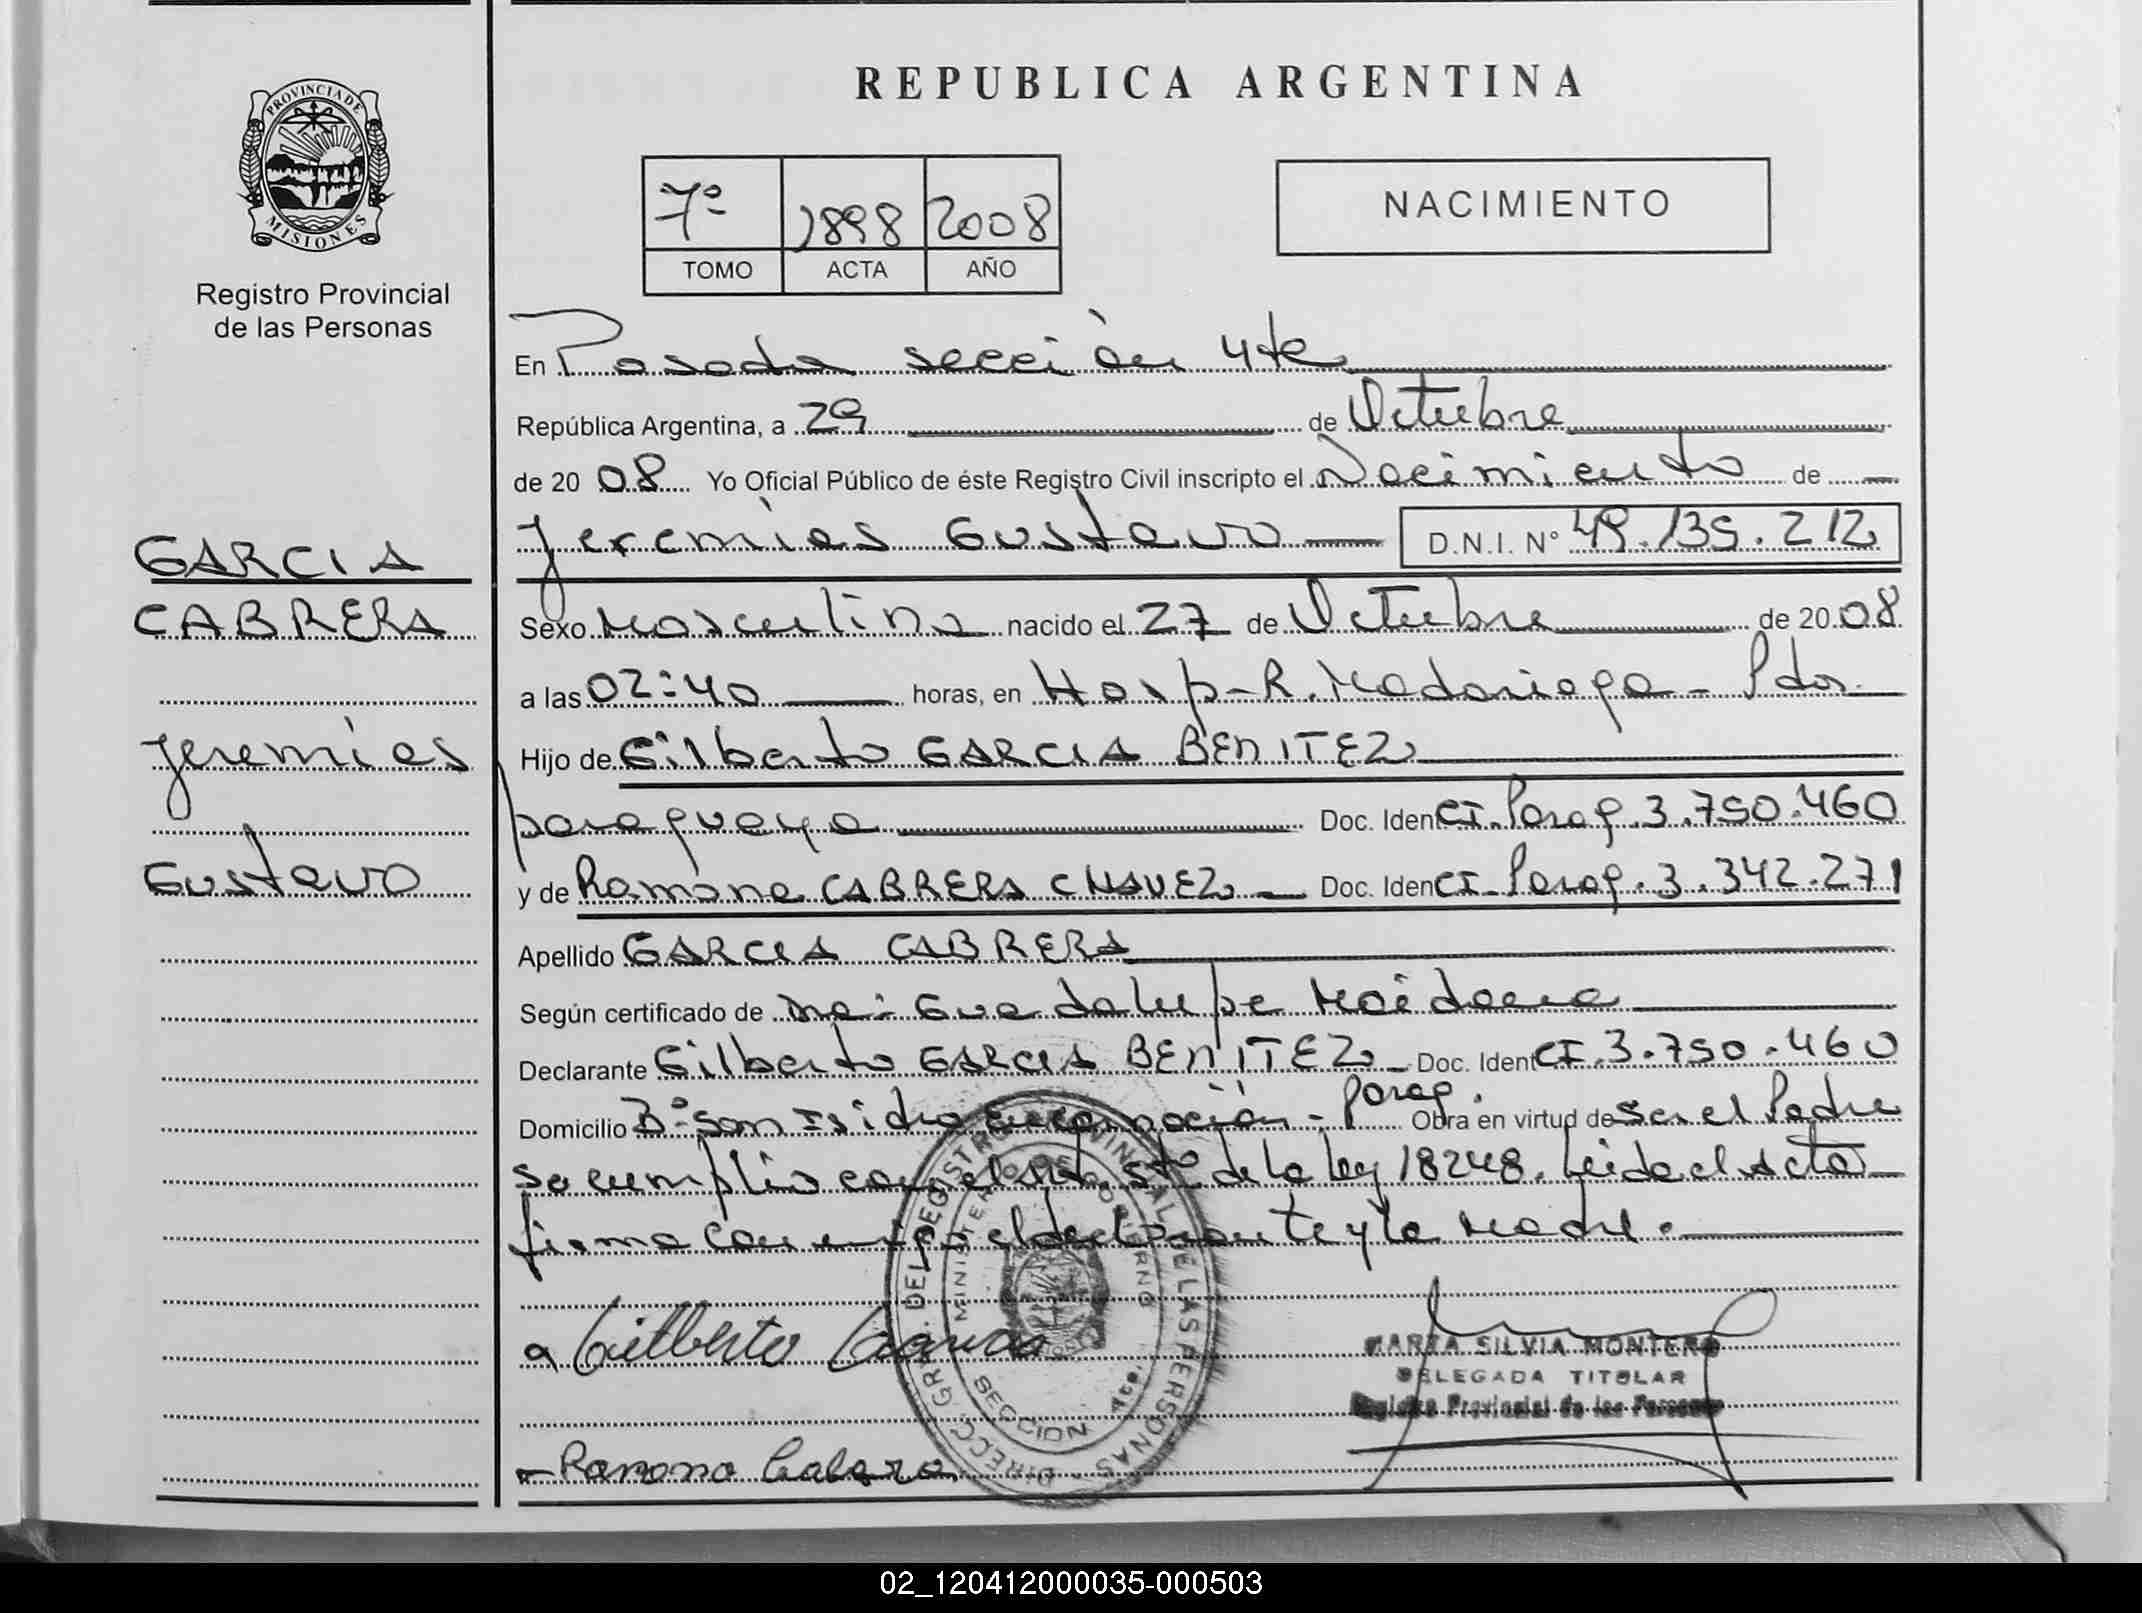 PROVINCIA DE
MISIONES
Registro Provincial
de las Personas
GARCIA
CABRERA
Jeremias
Gustavo
REPUBLICA ARGENTINA
7º 1898 2008
TOMO ACTA AÑO
NACIMIENTO
En Posadas sección 4ta
República Argentina, a 29 de Octubre
de 2008 Yo Oficial Público de éste Registro Civil inscripto el Nacimiento de
Jeremias Gustavo D.N.I. Nº 49.135.212
Sexo Masculino nacido el 27 de Octubre de 2008
a las 02:40 horas, en Hosp-R. Madariaga - Pdas.
Hijo de Gilberto GARCIA BENITEZ
paraguaya Doc. Ident CI. Parag. 3.750.460
y de Ramona CABRERA CHAVEZ Doc. Ident CI. Parag. 3.342.271
Apellido GARCIA CABRERA
Según certificado de Guadalupe Maidana
Declarante Gilberto GARCIA BENITEZ Doc. Ident CI. 3.750.460
Domicilio Bº San Isidro Encarnación - Parag. Obra en virtud de ser el Padre
se cumplio con el 5to de la ley 18248. Leida el Acta
firma conmigo el declarante y la Madre.
Gilberto Garcia
MARTA SILVIA MONTERO
DELEGADA TITULAR
Registro Provincial de las Personas
Ramona Cabrera
DIRECC. GRAL. DEL REGISTRO PROVINCIAL DE LAS PERSONAS
MINISTERIO DE GOBIERNO
SECCION 4ta.
02_120412000035-000503